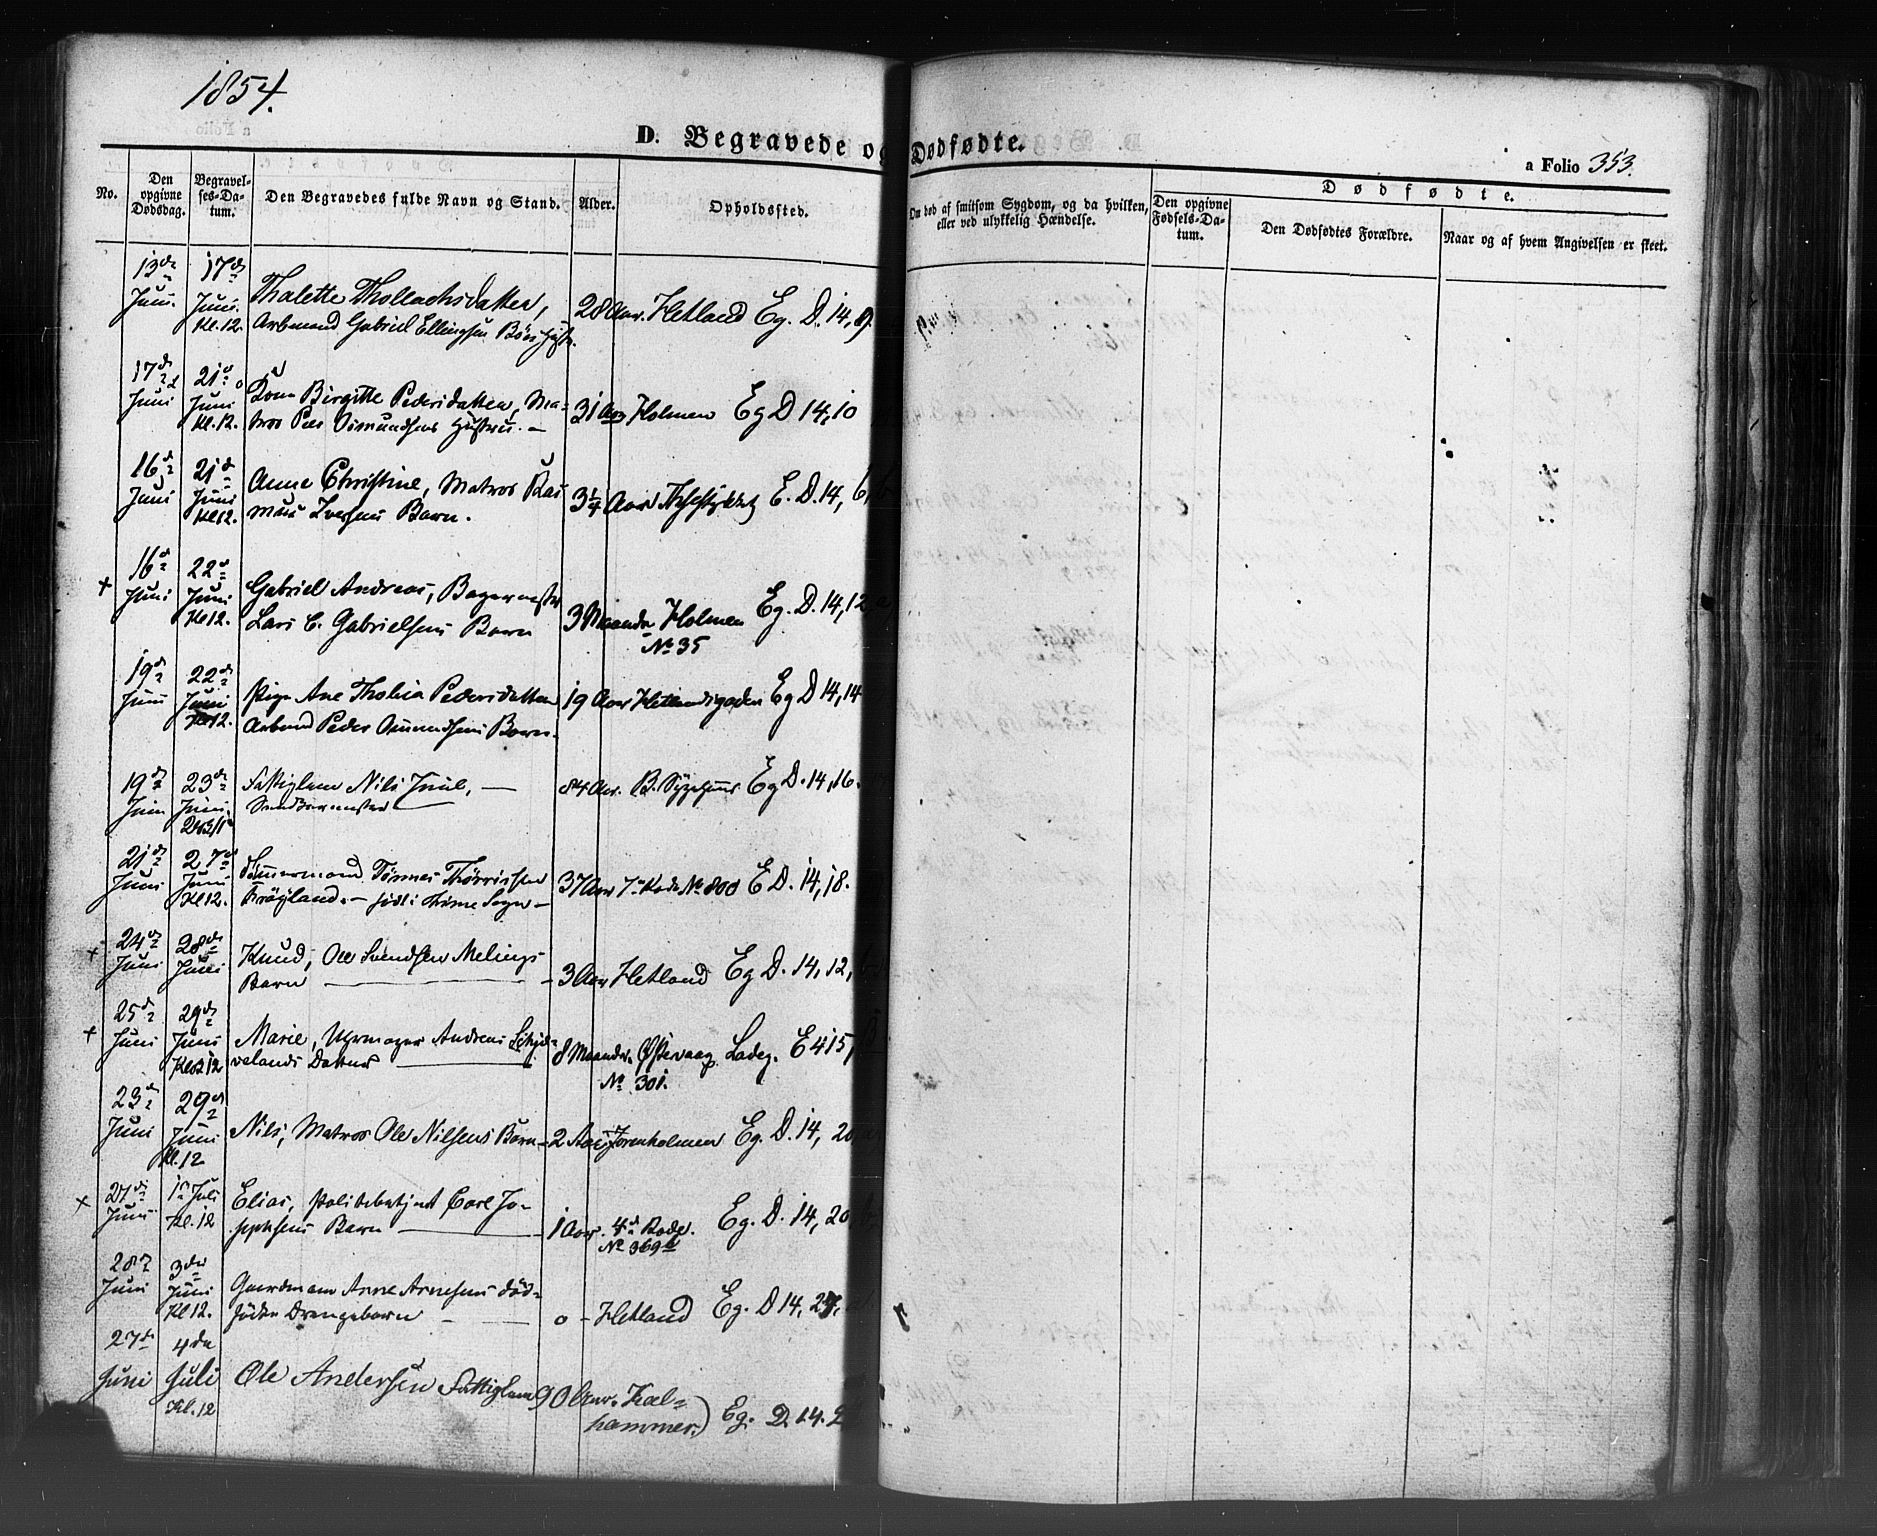 1854.
D. Begravede og Dødfødte.
a Folio 353.
No.
Den opgivne Dødsdag.
Begravelses-Datum.
Den Begravedes fulde Navn og Stand.
Alder.
Opholdssted.
Om død af smitsom Sygdom, og da hvilken, eller ved ulykkelig Hændelse.
Dødfødte.
Den opgivne Fødsels-Datum.
Den Dødfødtes Forældre.
Naar og af hvem Angivelsen er skeet.
13de Juni. 17de Juni. Kl. 12. Thalette Thollachsdatter, 28 Aar. Hetland Eg. D. 14, 9.
Arbmand Gabriel Ellingsen
17de Juni 21de Juni Kl. 12. Kone Birgitte Pedersdatter, Ma- 31 Aar Holmen Eg D 14,10
tros Peer Osmundsens Hustru. -
16de Juni 21de Juni Kl 12. Anne Christine, Matros Ras 3¼ Aar E. D. 14, 6,
mus Iversens Barn.
+ 16de Juni 22de Juni Kl 12. Gabriel Andreas, Bagermester 3 Maander Holmen Eg. D. 14, 12
Lars C. Gabrielsens Barn No 35
19de Juni 22de Juni Kl 12. Pige Ane Pedersdatter 19 Aar Hetlandsgaden Eg D 14, 14
Arbmd Peder Barn.
19de Juni 23de Juni Fattiglem Nils Juul, - 84 Aar. B. Sygehuus Eg D. 14, 16.
21de Juni 27de Juni Kl 12. Tømmermand Tønnes Thörrissen 37 Aar 7de Rode No 800 E D. 14, 18.
Fröyland. - født i Time Sogn -
+ 24de Juni 28de Juni Knud, Ole Svendsen Melings 3 Aar Hetland Eg D. 14, 12,
Barn -
+ 25de Juni 29de Juni Kl 12 Marie, Uhrmager Andreas 8 Maander. Østervaag Ladeg. E 4 15,
velands Datter No 301.
23de Juni 29de Juni Kl. 12 Nils, Matros Ole Nilsens Barn - 2 Aar Jorenholmen Eg. D. 14, 20
+ 27de Juni 1ste Juli Kl. 12 Elias, Politibetjent Carl Jo- 1 Aar. 4de Rode. Eg. D. 14, 20
sephsens Barn No 369
28de Juni 3die Juni Kl 12. Gaardmann Arne Arnesens død- 0 - Hetland Eg. D 14, 27,
fødte Drengebarn
27de Juni 4de Juli Kl. 12 Ole Andersen Fattiglem 90 Aar. Kal-
hammer.) Eg. D. 14. 2